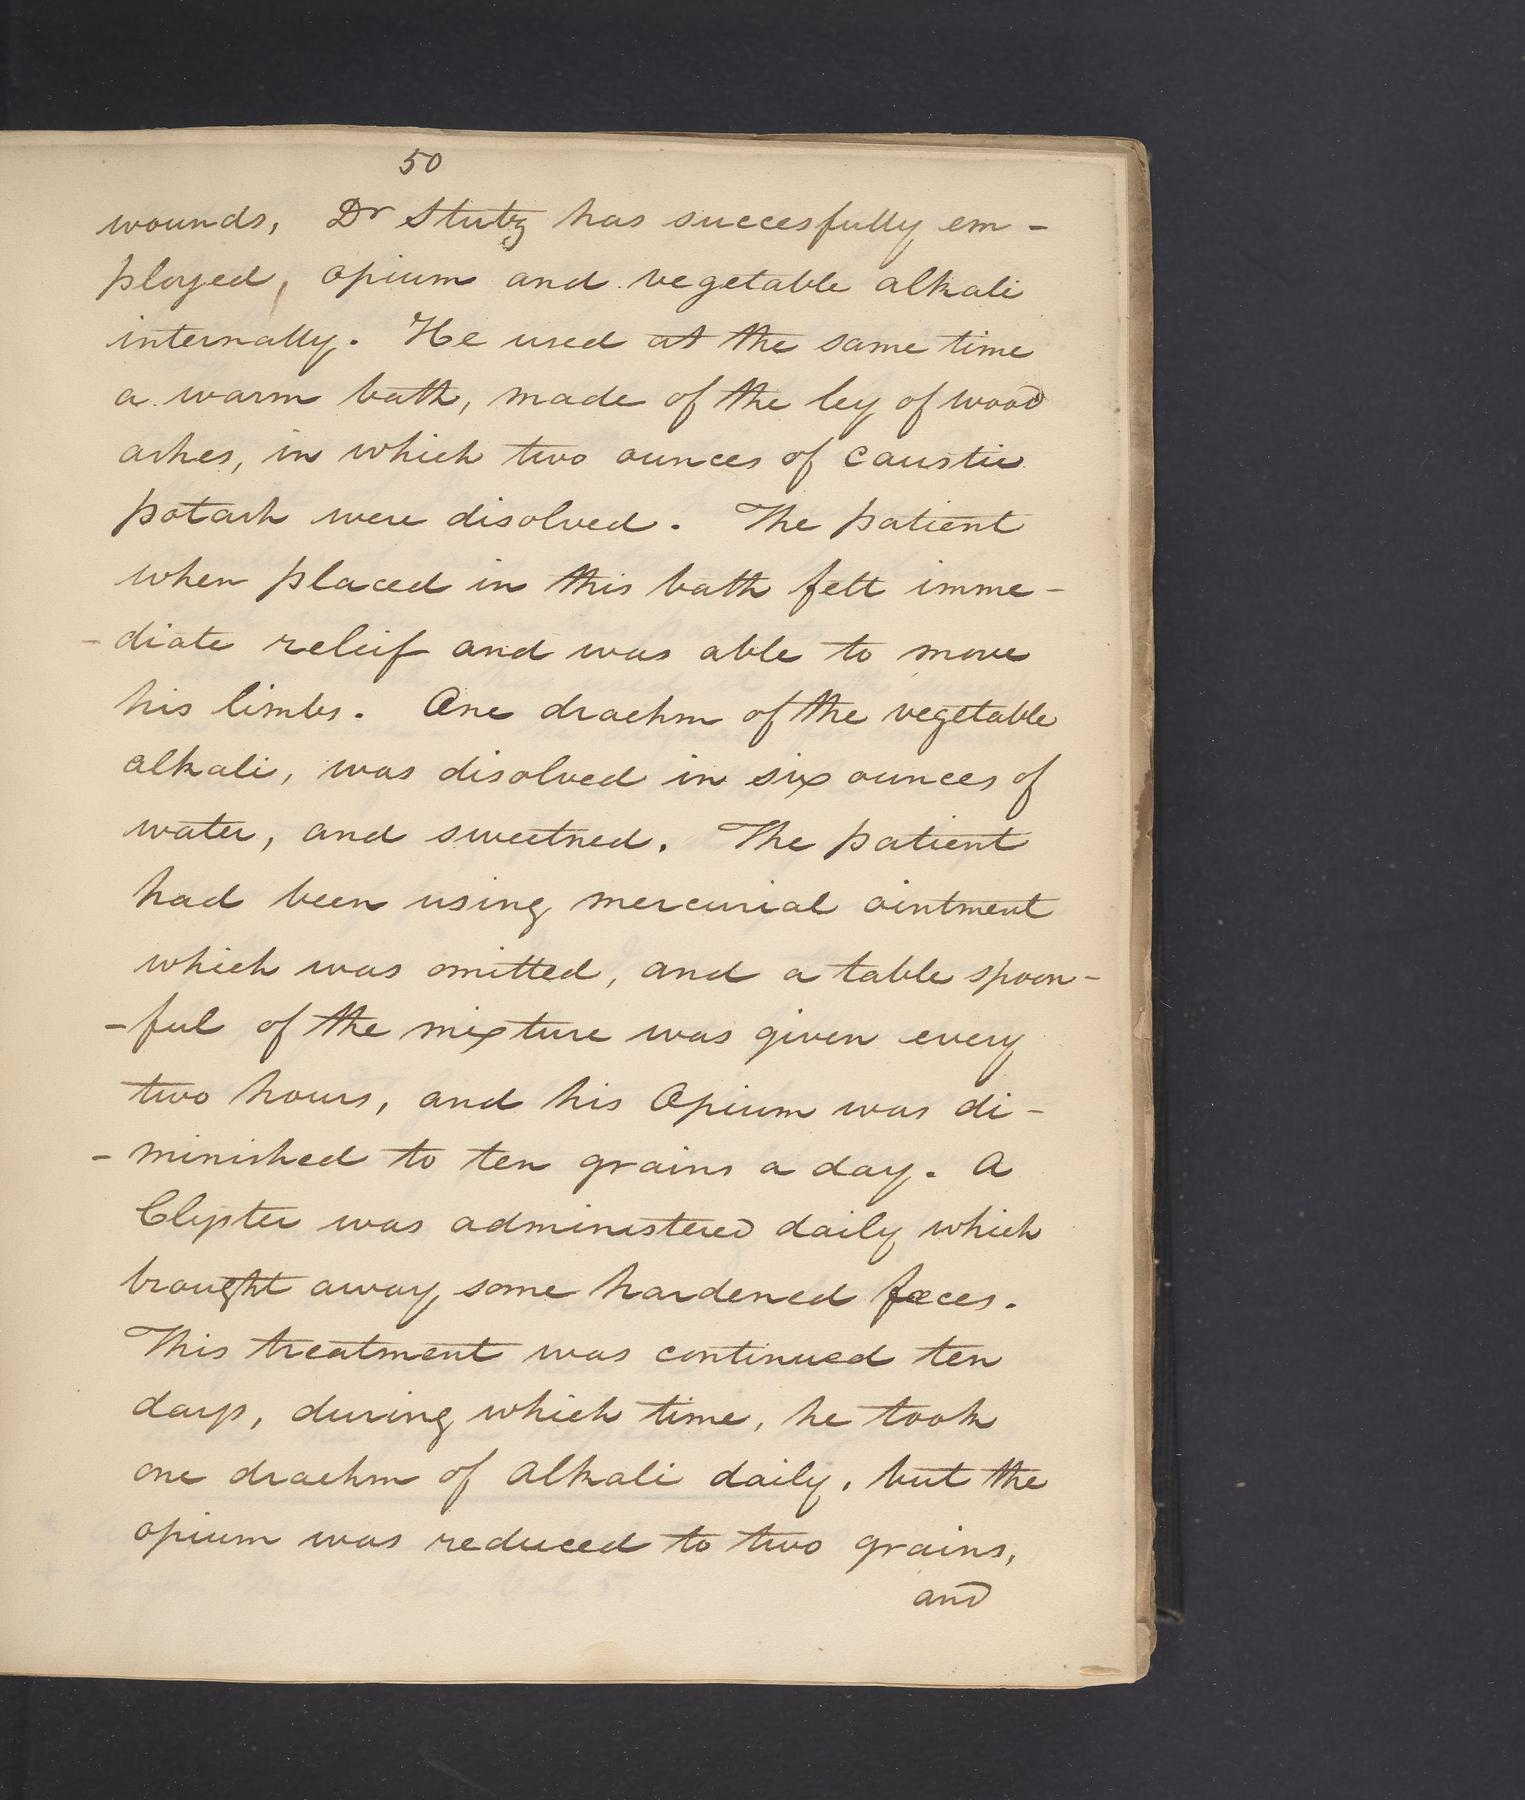 50
wounds, Dr Stutz has succesfully em-
ployed, opium and vegetable alkali
internally. He used at the same time
a warm bath, made of the ley of wood
ashes, in which two ounces of caustic
potash were disolved. The patient
when placed in this bath felt imme-
-diate releif and was able to move
his limbs. One drachm of the vegetable
alkali, was disolved in six ounces of
water, and sweetned. The patient
had been using mercurial ointment
which was omitted, and a table spoon-
-ful of the mixture was given every
two hours, and his Opium was di-
-minished to ten grains a day. A
Clyster was administered daily which
brought away some hardened fæces.
This treatment was continued ten
days, during which time, he took
one drachm of alkali daily, but the
opium was reduced to two grains,
and